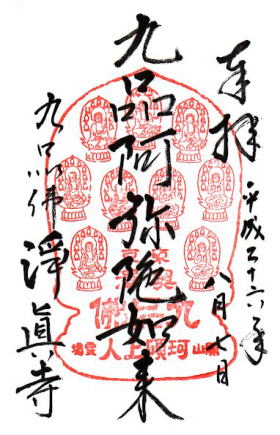 奉拝
平成二十六年
八月七日
九品阿弥陀如来
九品仏
開山珂碩上人霊場
九品佛 淨眞寺